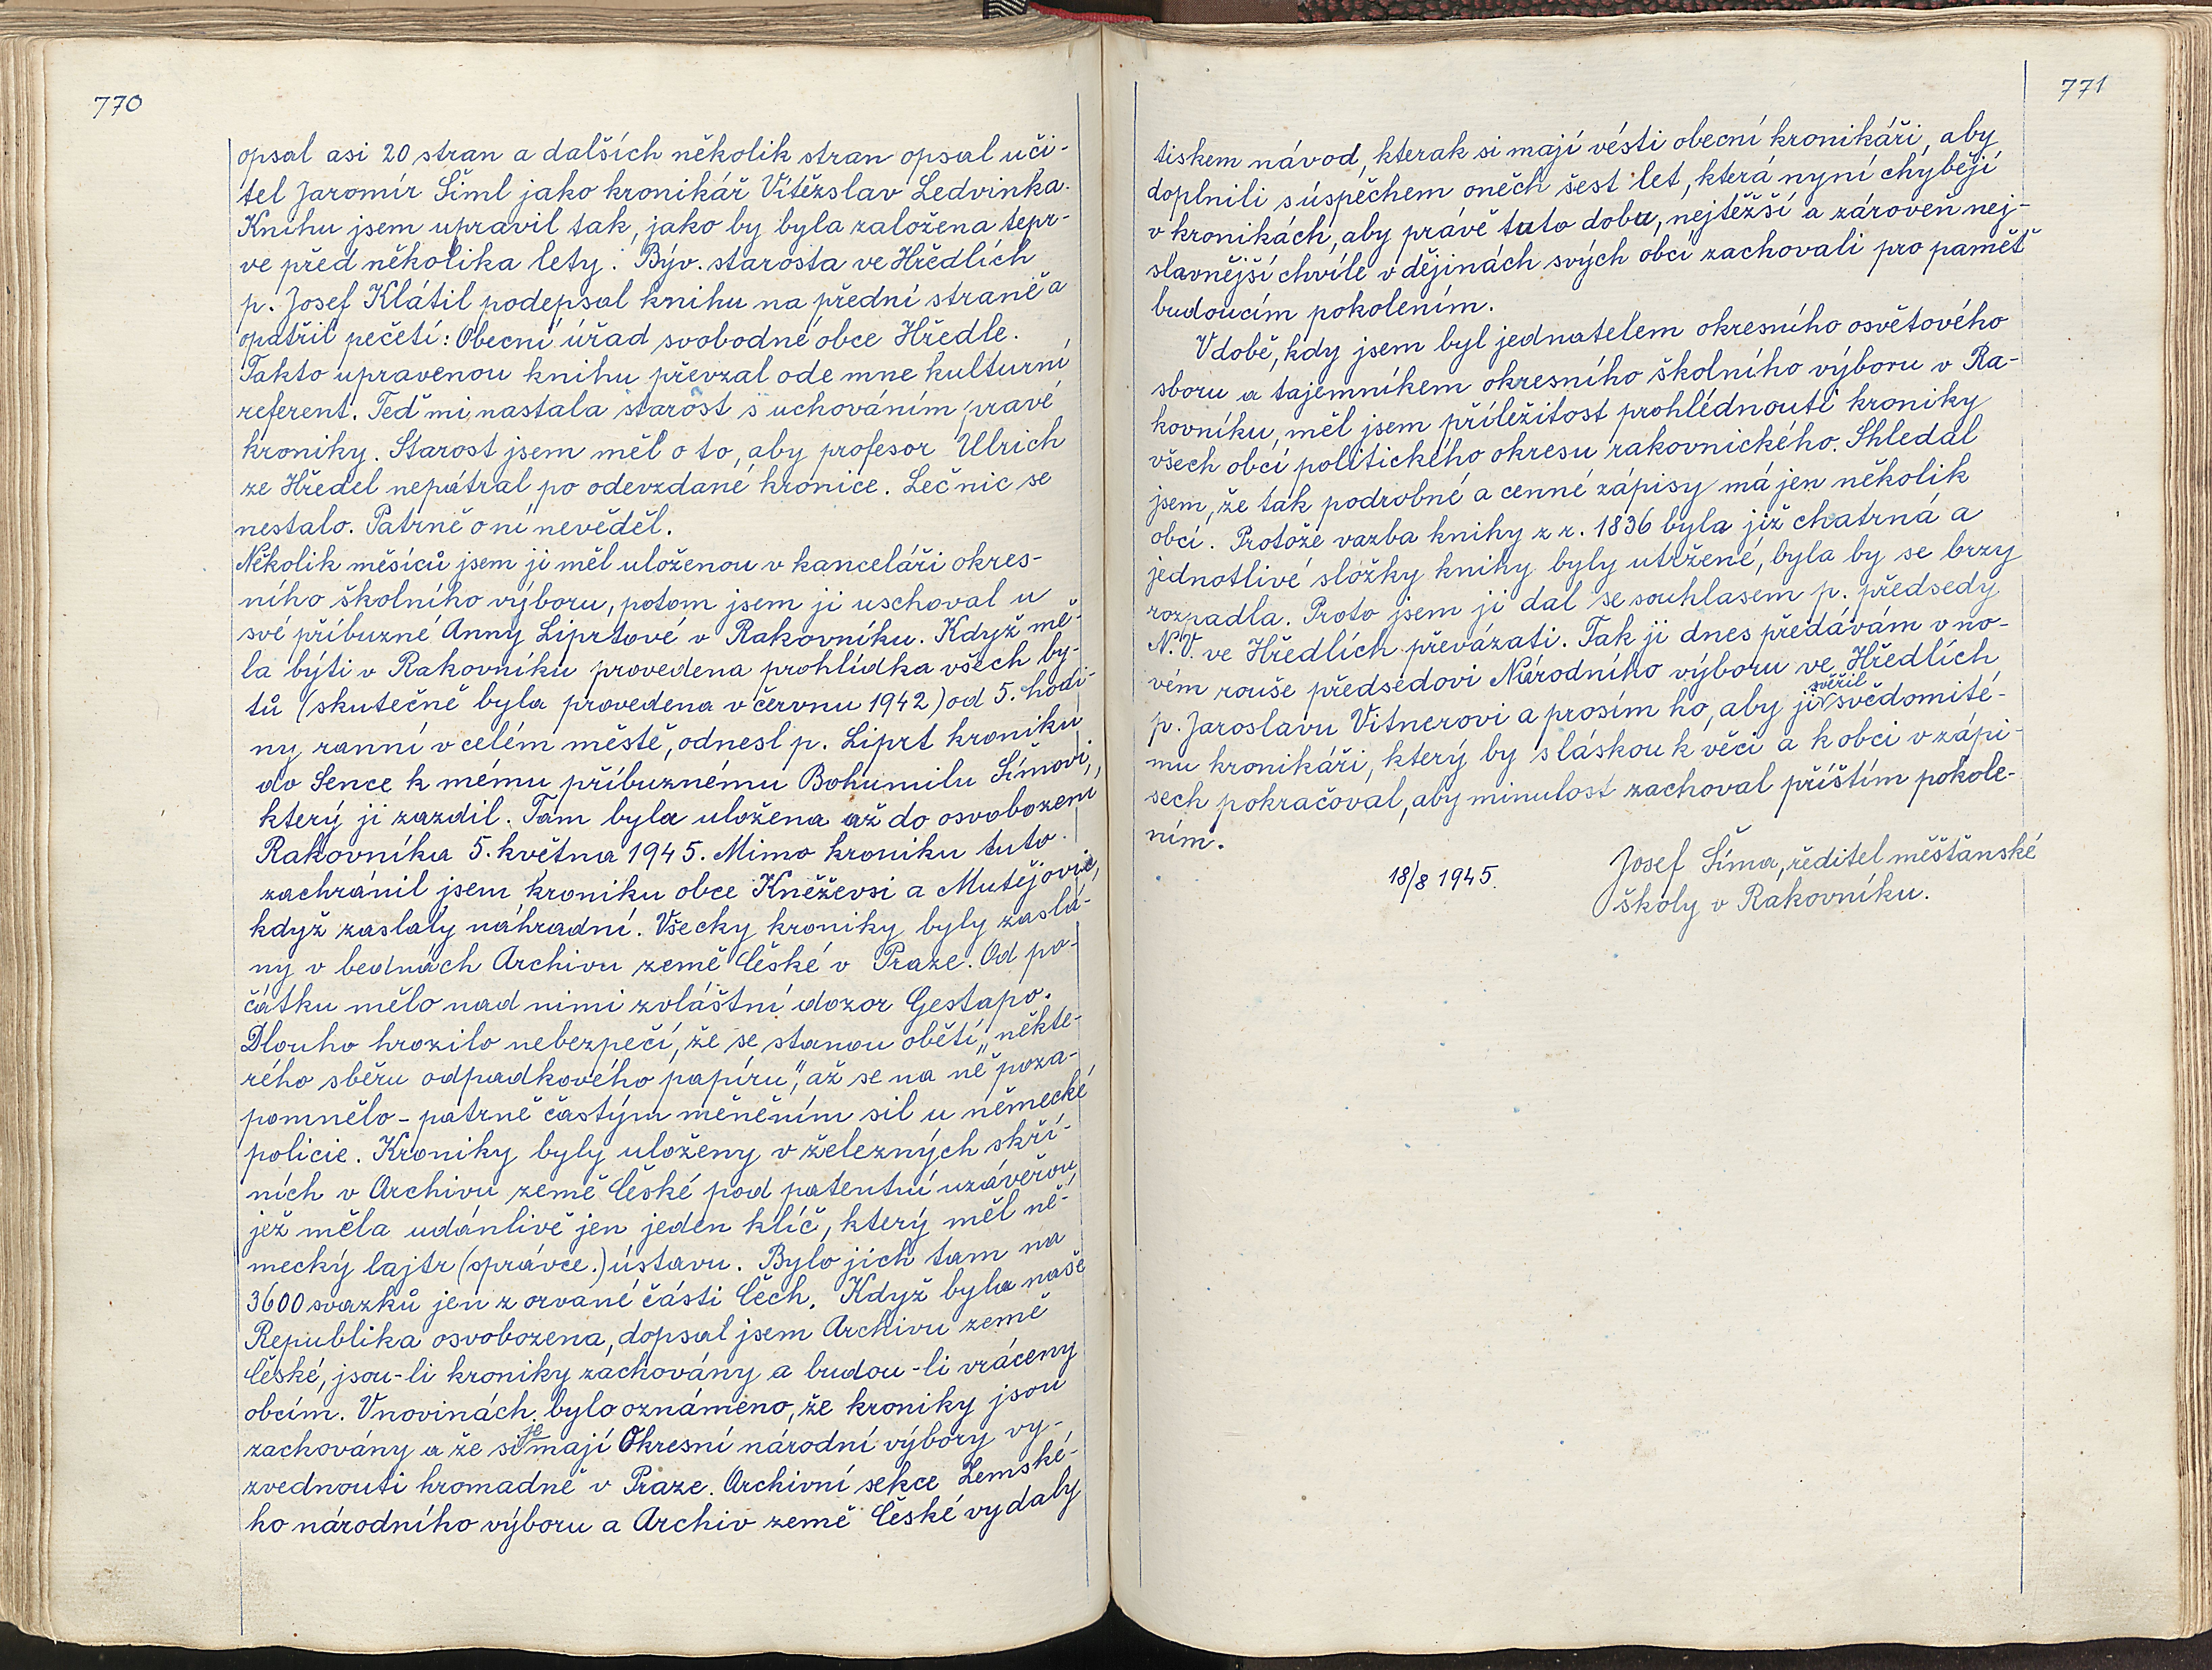 770
opsal asi 20 stran a dalších několik stran opsal uči-
tel Jaromír Šiml jako kronikář Vítězslav Ledvinka.
Knihu jsem upravil tak, jako by byla založena tepr-
ve před několika lety. Býv. starosta ve Hředlích
p. Josef Klátil podepsal knihu na přední straně a
opatřil pečetí: Obecní úřad svobodné obce Hředle.
Takto upravenou knihu převzal ode mne kulturní
referent. Teď mi nastala starost s uchováním pravé
kroniky. Starost jsem měl o to, aby profesor Ulrich
ze Hředel nepátral po odevzdané kronice. Leč nic se
nestalo. Patrně o ní nevěděl.
Několik měsíců jsem ji měl uloženou v kanceláři okres-
ního školního výboru, potom jsem ji uschoval u
své příbuzné Anny Liprtové v Rakovníku. Když mě-
la býti v Rakovníku provedena prohlídka všech by-
tů (skutečně byla provedena v červnu 1942) od 5. hodi-
ny ranní v celém městě, odnesl p. Liprt kroniku
do Sence k mému příbuznému Bohumilu Šímovi,
který ji zazdil. Tam byla uložena až do osvobození
Rakovníka 5. května 1945. Mimo kroniku tuto
zachránil jsem kroniku obce Kněževsi a Mutějovic,
když zaslaly náhradní. Všecky kroniky byly zaslá-
ny v bednách Archivu země České v Praze. Od po-
čátku mělo nad nimi zvláštní dozor Gestapo.
Dlouho hrozilo nebezpečí, že se stanou obětí „někte-
rého sběru odpadkového papíru", až se na ně poza-
pomnělo - patrně častým měněním sil u německé
policie. Kroniky byly uloženy v železných skří-
ních v Archivu země České pod patentní uzávěrou,
jež měla udánlivě jen jeden klíč, který měl ně-
mecký lajtr (správce.) ústavu. Bylo jich tam na
3600 svazků jen z orvané části Čech. Když byla naše
Republika osvobozena, dopsal jsem Archivu země
České, jsou-li kroniky zachovány a budou-li vráceny
obcím. V novinách bylo oznámeno, že kroniky jsou
zachovány a že si je mají Okresní národní výbory vy-
zvednouti hromadně v Praze. Archivní sekce Zemské-
ho národního výboru a Archiv země České vydaly
771
tiskem návod, kterak si mají vésti obecní kronikáři, aby
doplnili s úspěchem oněch šest let, která nyní chybějí
v kronikách, aby právě tuto dobu, nejtěžší a zároveň nej-
slavnější chvíle v dějinách svých obcí zachovali pro paměť
budoucím pokolením.
V době, kdy jsem byl jednatelem okresního osvětového
sboru a tajemníkem okresního školního výboru v Ra-
kovníku, měl jsem příležitost prohlédnouti kroniky
všech obcí politického okresu rakovnického. Shledal
jsem, že tak podrobné a cenné zápisy má jen několik
obcí. Protože vazba knihy z r. 1836 byla již chatrná a
jednotlivé složky knihy byly utržené, byla by se brzy
rozpadla. Proto jsem ji dal se souhlasem p. předsedy
N.V. ve Hředlích převázati. Tak ji dnes předávám v no-
vém rouše předsedovi Národního výboru ve Hředlích
p. Jaroslavu Vitnerovi a prosím ho, aby ji svěřil svědomité-
mu kronikáři, který by s láskou k věci a k obci v zápi-
sech pokračoval, aby minulost zachoval příštím pokole-
ním.
18/8 1945. Josef Šíma, ředitel měšťanské
školy v Rakovníku.